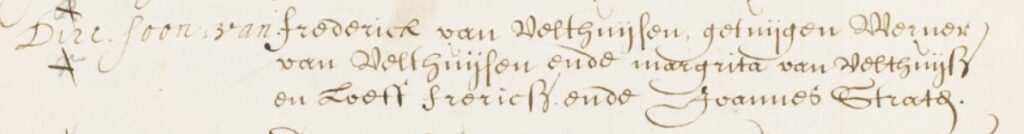 Dirc. soon van frederick van Velthuijsen, getuijgen Werner
van Velthuijsen ende margrita van Velthuijß
en Loeff frericß. ende Joannes Strate.